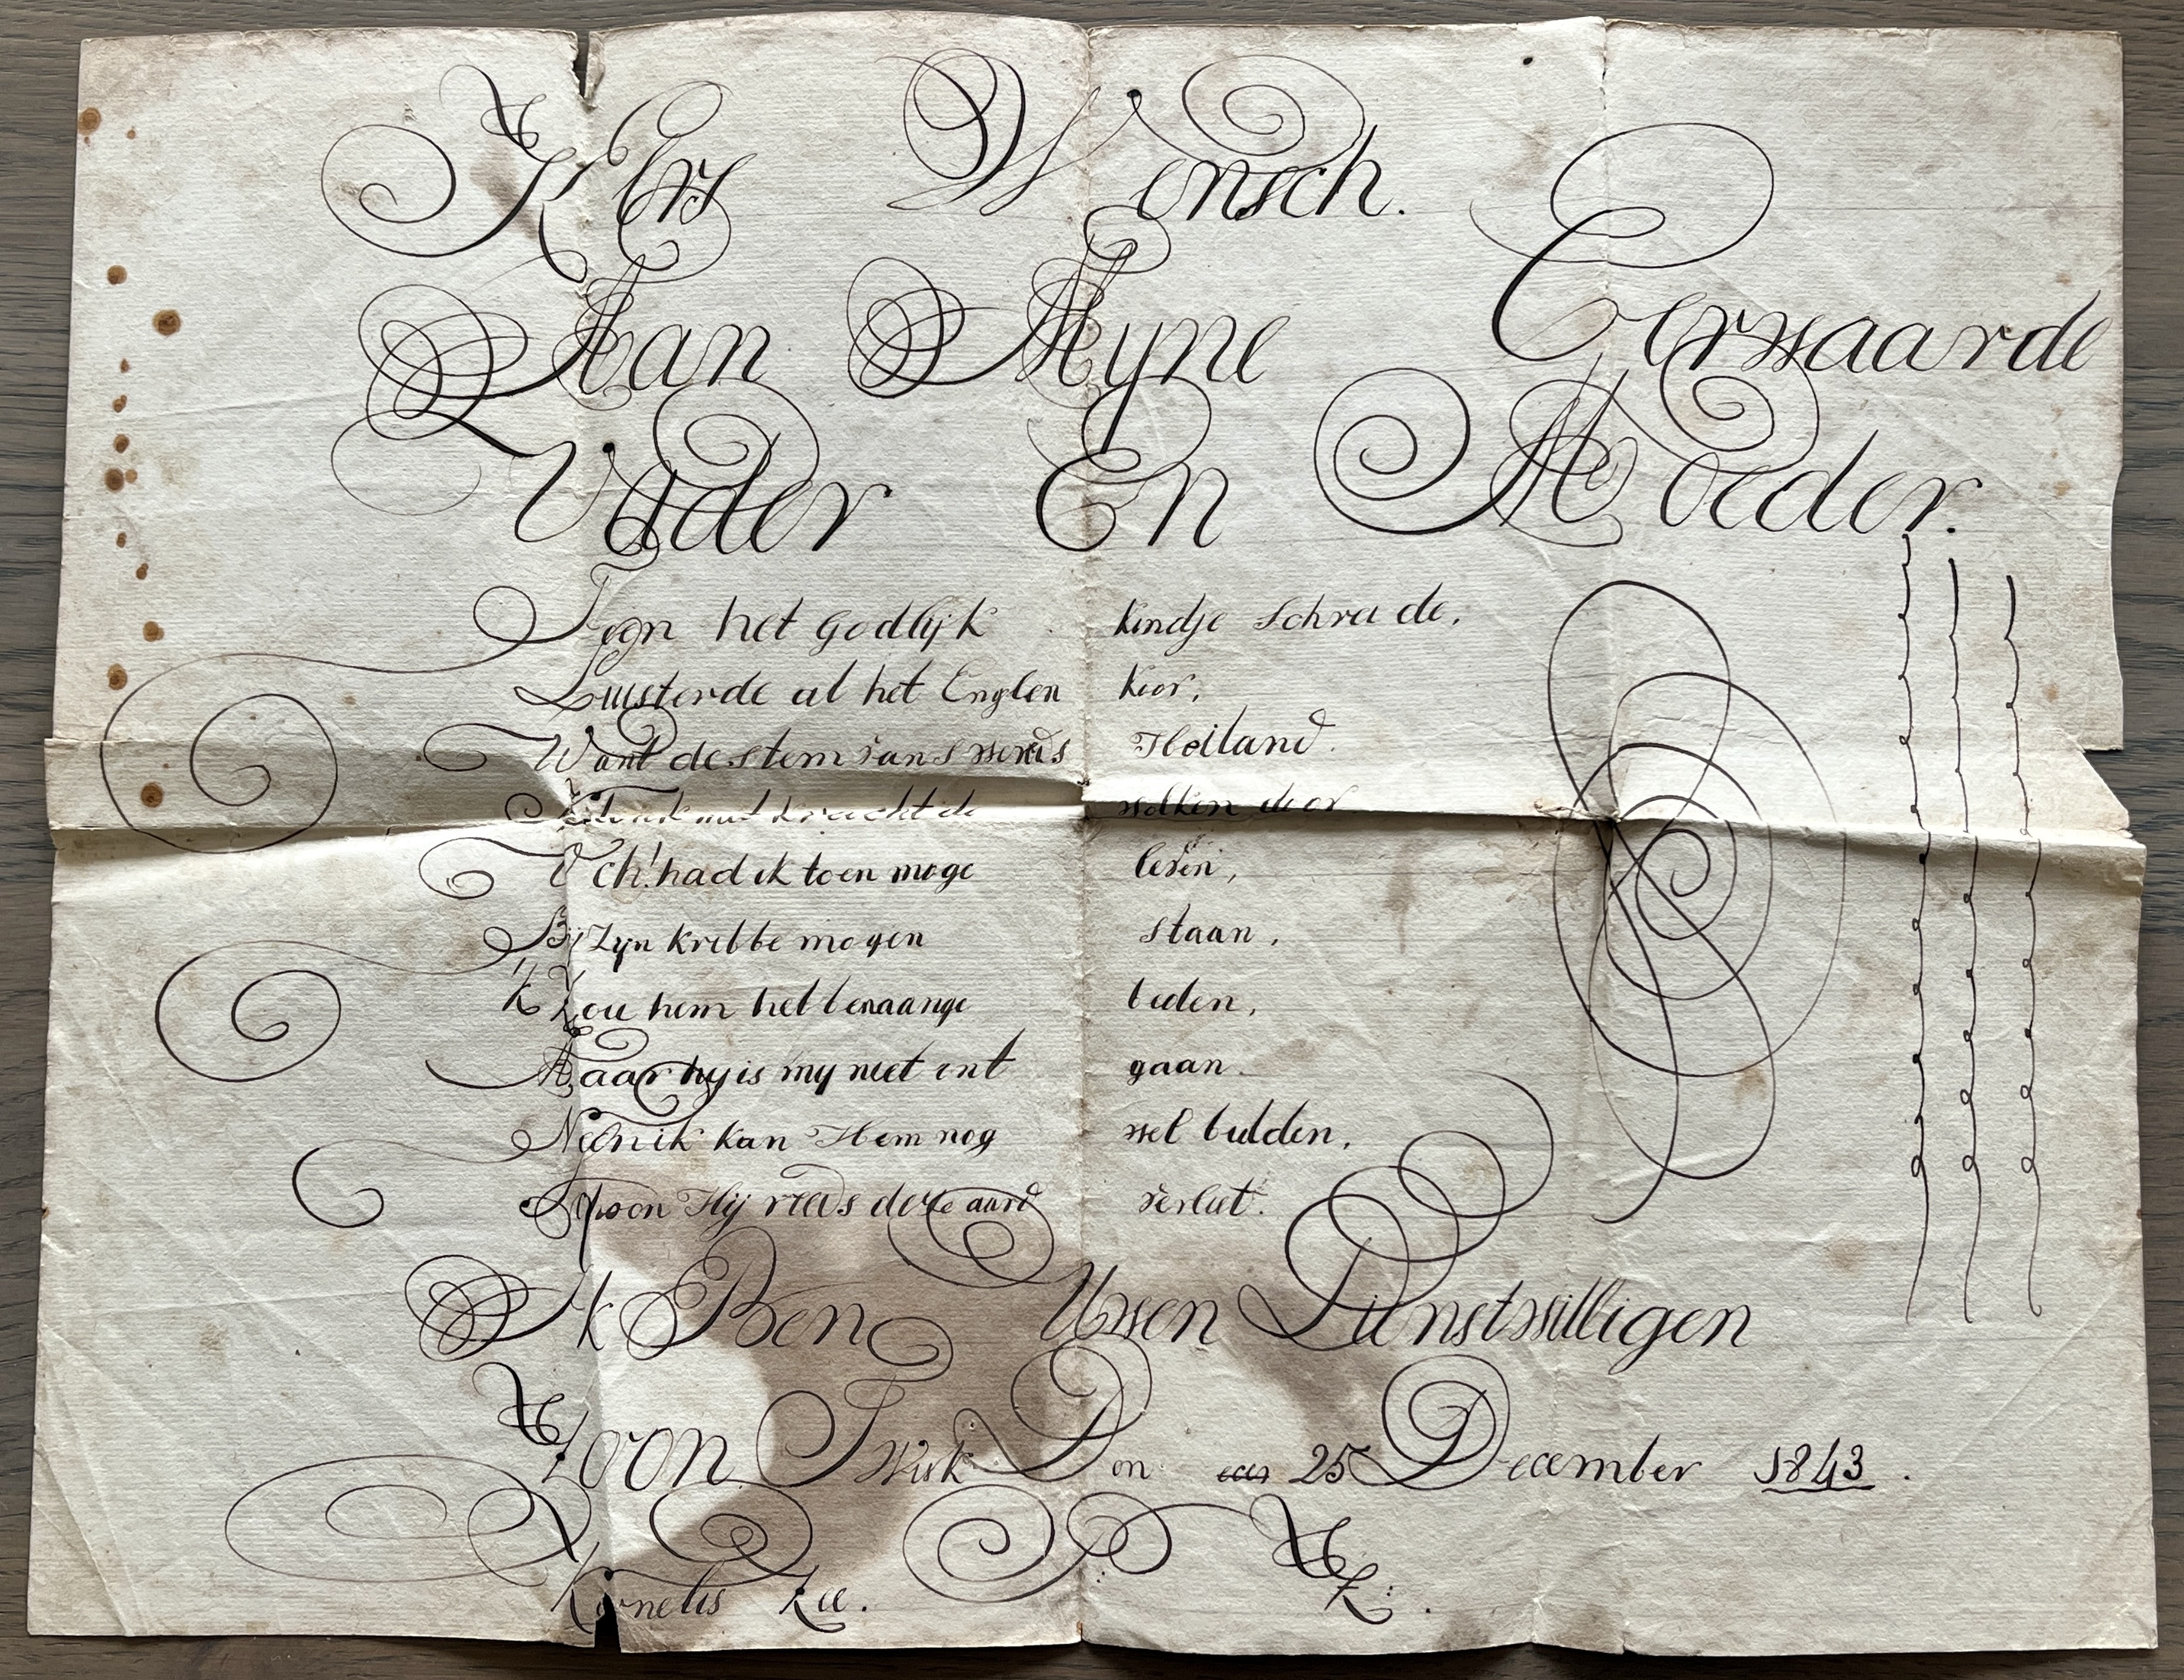 Kers Wensch.
Aan Myne Eerwaarde
Vader En Moeder.
Toen het godlijk kindje Schreide,
Luisterde al het Englen koor,
Want de stem van swerelds Heiland
Klonk met kracht de wolken door
Och! had ik toen moge leven,
By Zyn kribbe mogen staan,
'k Zou hem hebben aange beden,
Maar hy is my niet ont gaan.
Neen ik kan Hem nog wel bidden,
Schoon Hij reeds deze aard verliet.
Ik Ben Uwen Dinstwilligen
Zoon. Twisk Den 25 December 1843.
Kornelis Zee. K. Z.